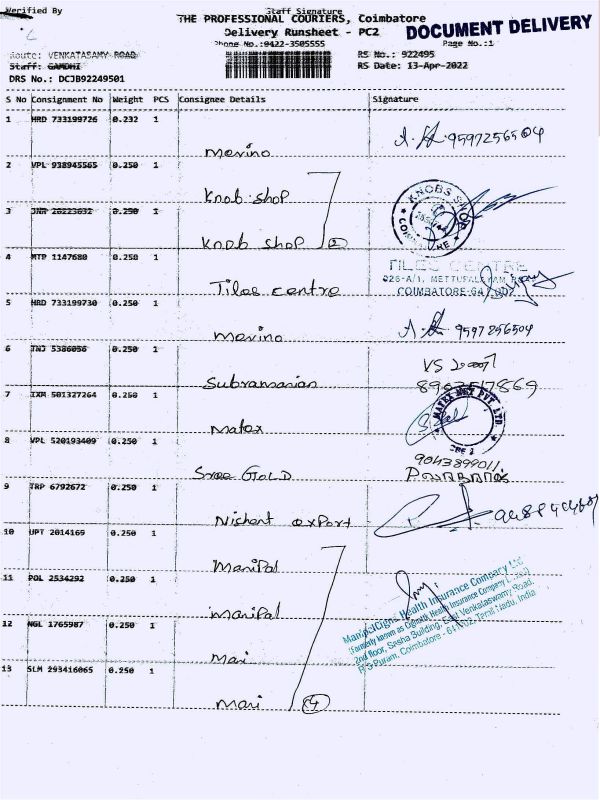 Verified By Staff Signature
THE PROFESSIONAL COURIERS, Coimbatore
DOCUMENT DELIVERY
Delivery Runsheet - PC2
Phone No.:0422-3505555 Page No.:1
Route: VENKATASAMY ROAD RS No.: 922495
Staff: GANDHI RS Date: 13-Apr-2022
DRS No.: DCJB92249501
S No Consignment No Weight PCS Consignee Details Signature
1 HRD 733199726 0.232 1
Merino 9597256504
2 VPL 938945565 0.250 1
Knob shop KNOBS SHOP
3 0.250 1
Knob shop 2
4 MTP 1147680 0.250 1
TILES CENTRE
Tiles centre COIMBATORE
5 HRD 733199730 0.250 1
Merino 9597256504
6 TNJ 5386056 0.250 1
Subramanian
7 IXM 501327264 0.250 1
Matex
8 VPL 520193409 0.250 1
9043899011
Sree GOLD
9 TRP 6792672 0.250 1
Nishant export
10 UPT 2014169 0.250 1
Manipal
11 POL 2534292 0.250 1
Manipal
ManipalCigna Health Insurance Company Ltd
(Formerly known as Cigna Health Insurance Company
2nd floor, Sesha Building, East Venkataswamy Road,
R S Puram, Coimbatore - Tamil Nadu, India
12 NGL 1765987 0.250 1
Mani
13 SLM 293416065 0.250 1
Mani 4